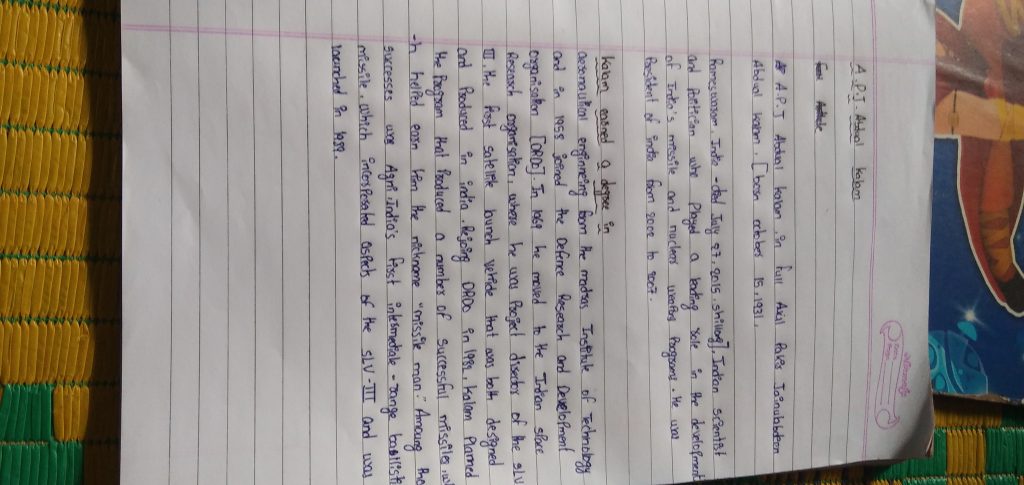 A.P.J. Abdul kalam
A.P.J Abdul kalam, in full Avil Pakir Jainulabdeen
Abdul kalam. [born october 15, 1931,
Rameswaram, India - died July 27, 2015, shillong], Indian scientist
and politician who Played a leading role in the development
of India's missile and nuclear weapons Programs. He was
President of india from 2002 to 2007.
kalam earned a degree in
aeronautical engineering from the madras Institute of Technology
and in 1958 joined the Defence Research and Development
organisation [DRDO]. In 1969 he moved to the Indian space
Research organisation, where he was Project director of the SLV
III. the first satellite launch vehicle that was both designed
and Produced in india. Rejoing DRDO in 1982, kalam Planned
the Program that Produced a number of successfull missiles, w
-h helped earn him the nickname "missile man." Among tho
successes was Agni, India's first intermediate - range ballistic
missile, which incorporated aspects of the SLV-III and was
launched in 1989.